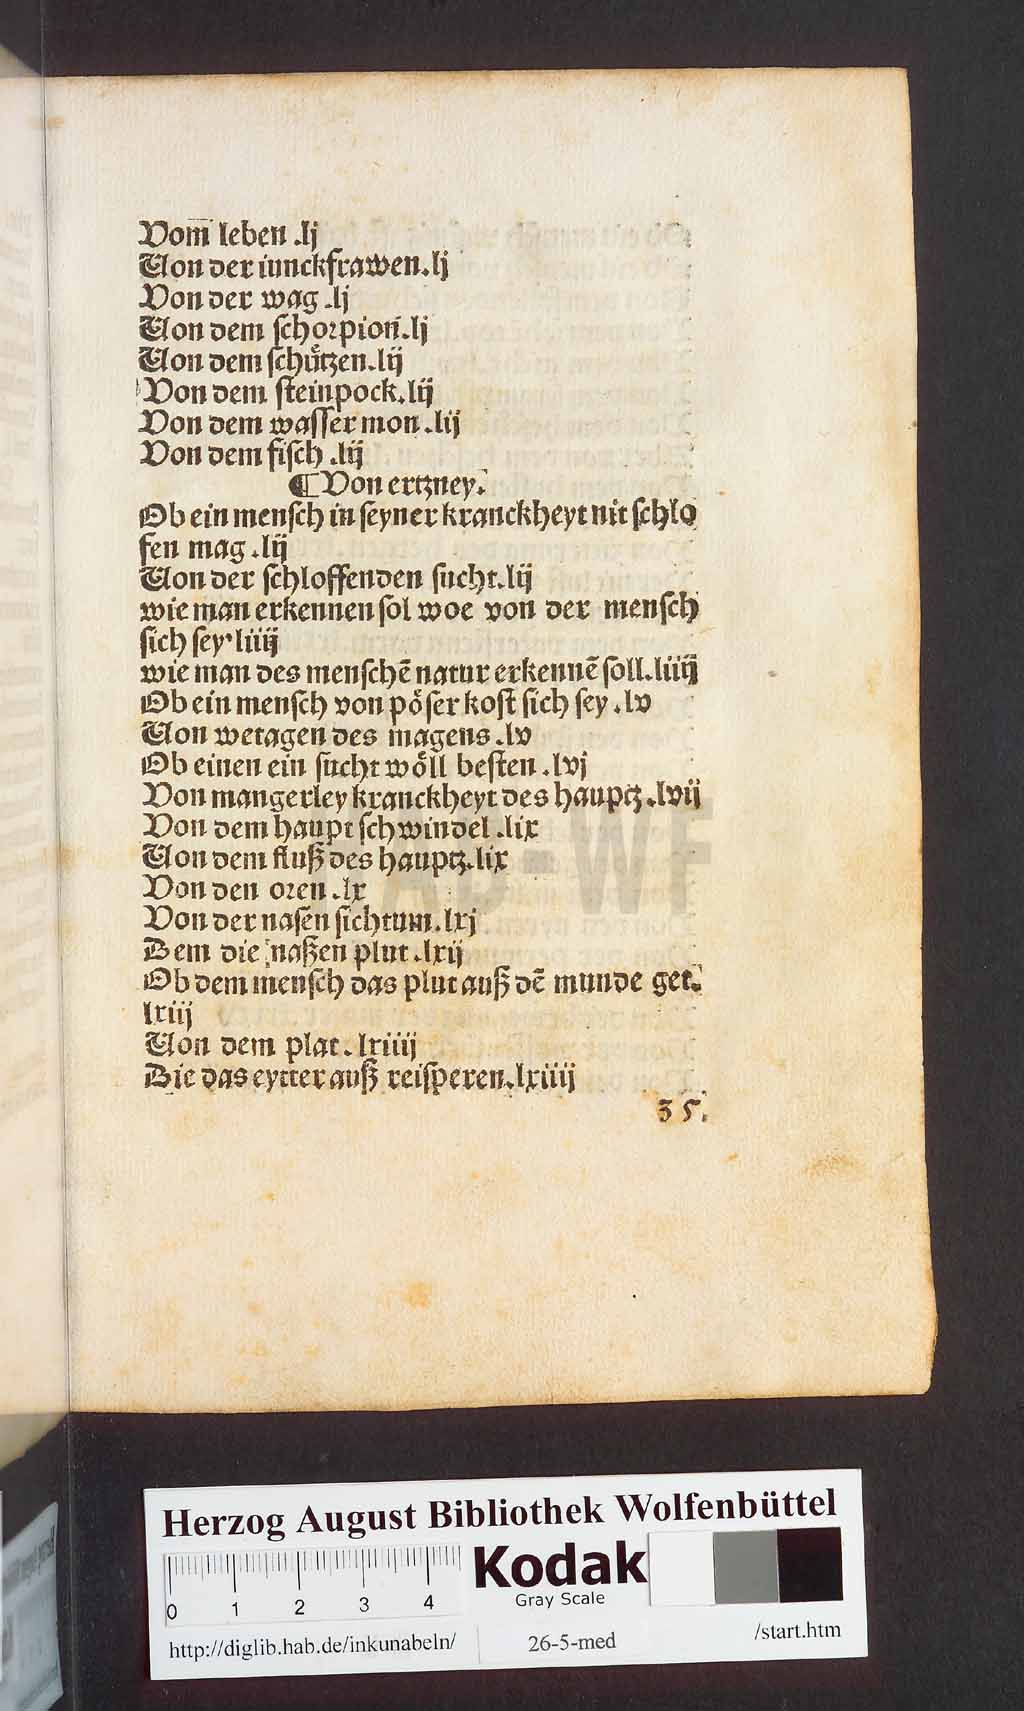 Vom̄ leben .lj
Von der iunckfrawen.lj
Von der wag .lj
Von dem ſchorpion̄.lj
Von dem ſchuͤtzen.lij
Von dem ſteinpock.lij
Von dem waſſer mon .lij
Von dem fiſch .lij
¶ Von ertzney.
Ob ein menſch in ſeyner kranckheyt nit ſchlo
fen mag .lij
Von der ſchloffenden ſucht.lij
wie man erkennen ſol woe von der menſch
ſich ſey’ liiij
wie man des menſchē natur erkennē ſoll.liiij
Ob ein menſch von poͤſer koſt ſich ſey .lv
Von wetagen des magens .lv
Ob einen ein ſucht woͤll beſten .lvj
Von mangerley kranckheyt des hauptz .lvij
Von dem haupt ſchwindel .lix
Von dem fluß des hauptz.lix
Von den oren .lx
Von der naſen ſichtum.lxj
Dem die naßen plut .lxij
Ob dem menſch das plut auß dē munde get.
lxiij
Von dem plat. lxiiij
Die das eytter auß reiſperen.lxiiij
35.
AB-WF
Herzog August Bibliothek Wolfenbüttel
Kodak
Gray Scale
0 1 2 3 4
http://diglib.hab.de/inkunabeln/ 26-5-med /start.htm